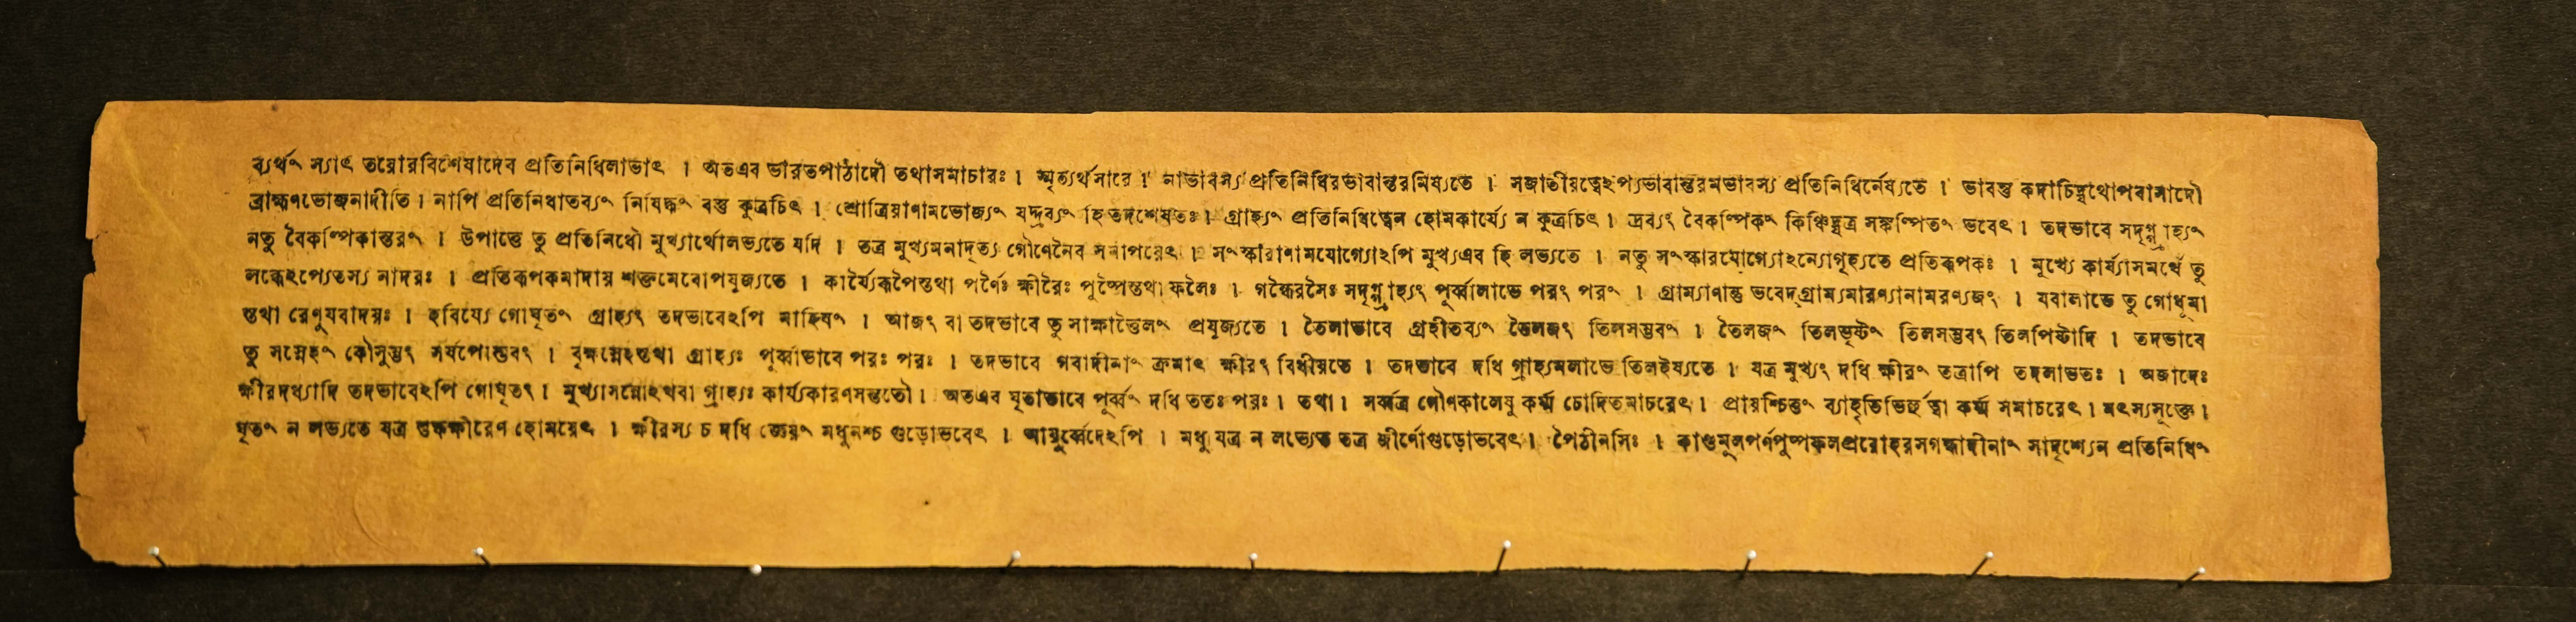 ব্যর্থং স্যাৎ তয়োরবিশেষাদেব প্রতিনিধিলাভাৎ । অতএব ভারতপাঠাদৌ তথাসমাচারঃ । স্মৃত্যর্থসারে । নাভাবস্য প্রতিনিধিরভাবান্তরমিষ্যতে । সজাতীয়ত্বেঽপ্যভাবান্তরমভাবস্য প্রতিনিধির্নেষ্যতে । ভাবস্তু কদাচিদ্যথোপবাসাদৌ
ব্রাহ্মণভোজনাদীতি । নাপি প্রতিনিধাতব্যং নিষিদ্ধং বস্তু কুত্রচিৎ । শ্রোত্রিয়াণামভোজ্যং যদ্দ্রব্যং হি তদশেষতঃ । গ্রাহ্যং প্রতিনিধিত্বেন হোমকার্য্যে ন কুত্রচিৎ । দ্রব্যং বৈকল্পিকং কিঞ্চিদ্যত্র সঙ্কল্পিতং ভবেৎ । তদভাবে সদৃগ্গ্রাহ্যং
নতু বৈকল্পিকান্তরং । উপাত্তে তু প্রতিনিধৌ মুখ্যার্থোলভ্যতে যদি । তত্র মুখ্যমনাদৃত্য গৌণেনৈব সমাপয়েৎ । সংস্কারাণামযোগ্যোঽপি মুখ্যএব হি লভ্যতে । নতু সংস্কারযোগ্যোঽন্যোগৃহ্যতে প্রতিরূপকঃ । মুখ্যে কার্য্যাসমর্থে তু
লব্ধেঽপ্যেতস্য নাদরঃ । প্রতিরূপকমাদায় শক্তমেবোপযুজ্যতে । কার্য্যৈরূপৈস্তথা পর্ণৈঃ ক্ষীরৈঃ পুষ্পৈস্তথা ফলৈঃ । গন্ধৈরসৈঃ সদৃগ্গ্রাহ্যং পূর্ব্বালাভে পরং পরং । গ্রাম্যাণান্তু ভবেদ্গ্রাম্যমারণ্যানামরণ্যজং । যবালাভে তু গোধূমা
স্তথা রেণুযবাদয়ঃ । হবিষ্যে গোঘৃতং গ্রাহ্যং তদভাবেঽপি মাহিষং । আজং বা তদভাবে তু সাক্ষাত্তৈলং প্রযুজ্যতে । তৈলাভাবে গ্রহীতব্যং তৈলজং তিলসম্ভবং । তৈলজং তিলভৃষ্টং তিলসম্ভবং তিলপিষ্টাদি । তদভাবে
তু সস্নেহং কৌসুম্ভং সর্ষপোদ্ভবং । বৃক্ষস্নেহস্তথা গ্রাহ্যঃ পূর্ব্বাভাবে পরঃ পরঃ । তদভাবে গবাদীনাং ক্রমাৎ ক্ষীরং বিধীয়তে । তদভাবে দধি গ্রাহ্যমলাভে তিলইষ্যতে । যত্র মুখ্যং দধি ক্ষীরং তত্রাপি তদলাভতঃ । অজাদেঃ
ক্ষীরদধ্যাদি তদভাবেঽপি গোঘৃতং । মুখ্যাসন্নোঽথবা গ্রাহ্যঃ কার্য্যকারণসন্ততৌ । অতএব ঘৃতাভাবে পূর্ব্বং দধি ততঃ পয়ঃ । তথা । সর্ব্বত্র গৌণকালেষু কর্ম্ম চোদিতমাচরেৎ । প্রায়শ্চিত্তং ব্যাহৃতিভির্হুত্বা কর্ম্ম সমাচরেৎ । মৎস্যসূক্তে ।
ঘৃতং ন লভ্যতে যত্র শুষ্কক্ষীরেণ হোময়েৎ । ক্ষীরস্য চ দধি জ্ঞেয়ং মধুনশ্চ গুড়োভবেৎ । আয়ুর্ব্বেদেঽপি । মধু যত্র ন লভ্যেত তত্র জীর্ণোগুড়োভবেৎ । পৈঠীনসিঃ । কাণ্ডমূলপর্ণপুষ্পফলপ্ররোহরসগন্ধাদীনাং সাদৃশ্যেন প্রতিনিধিং